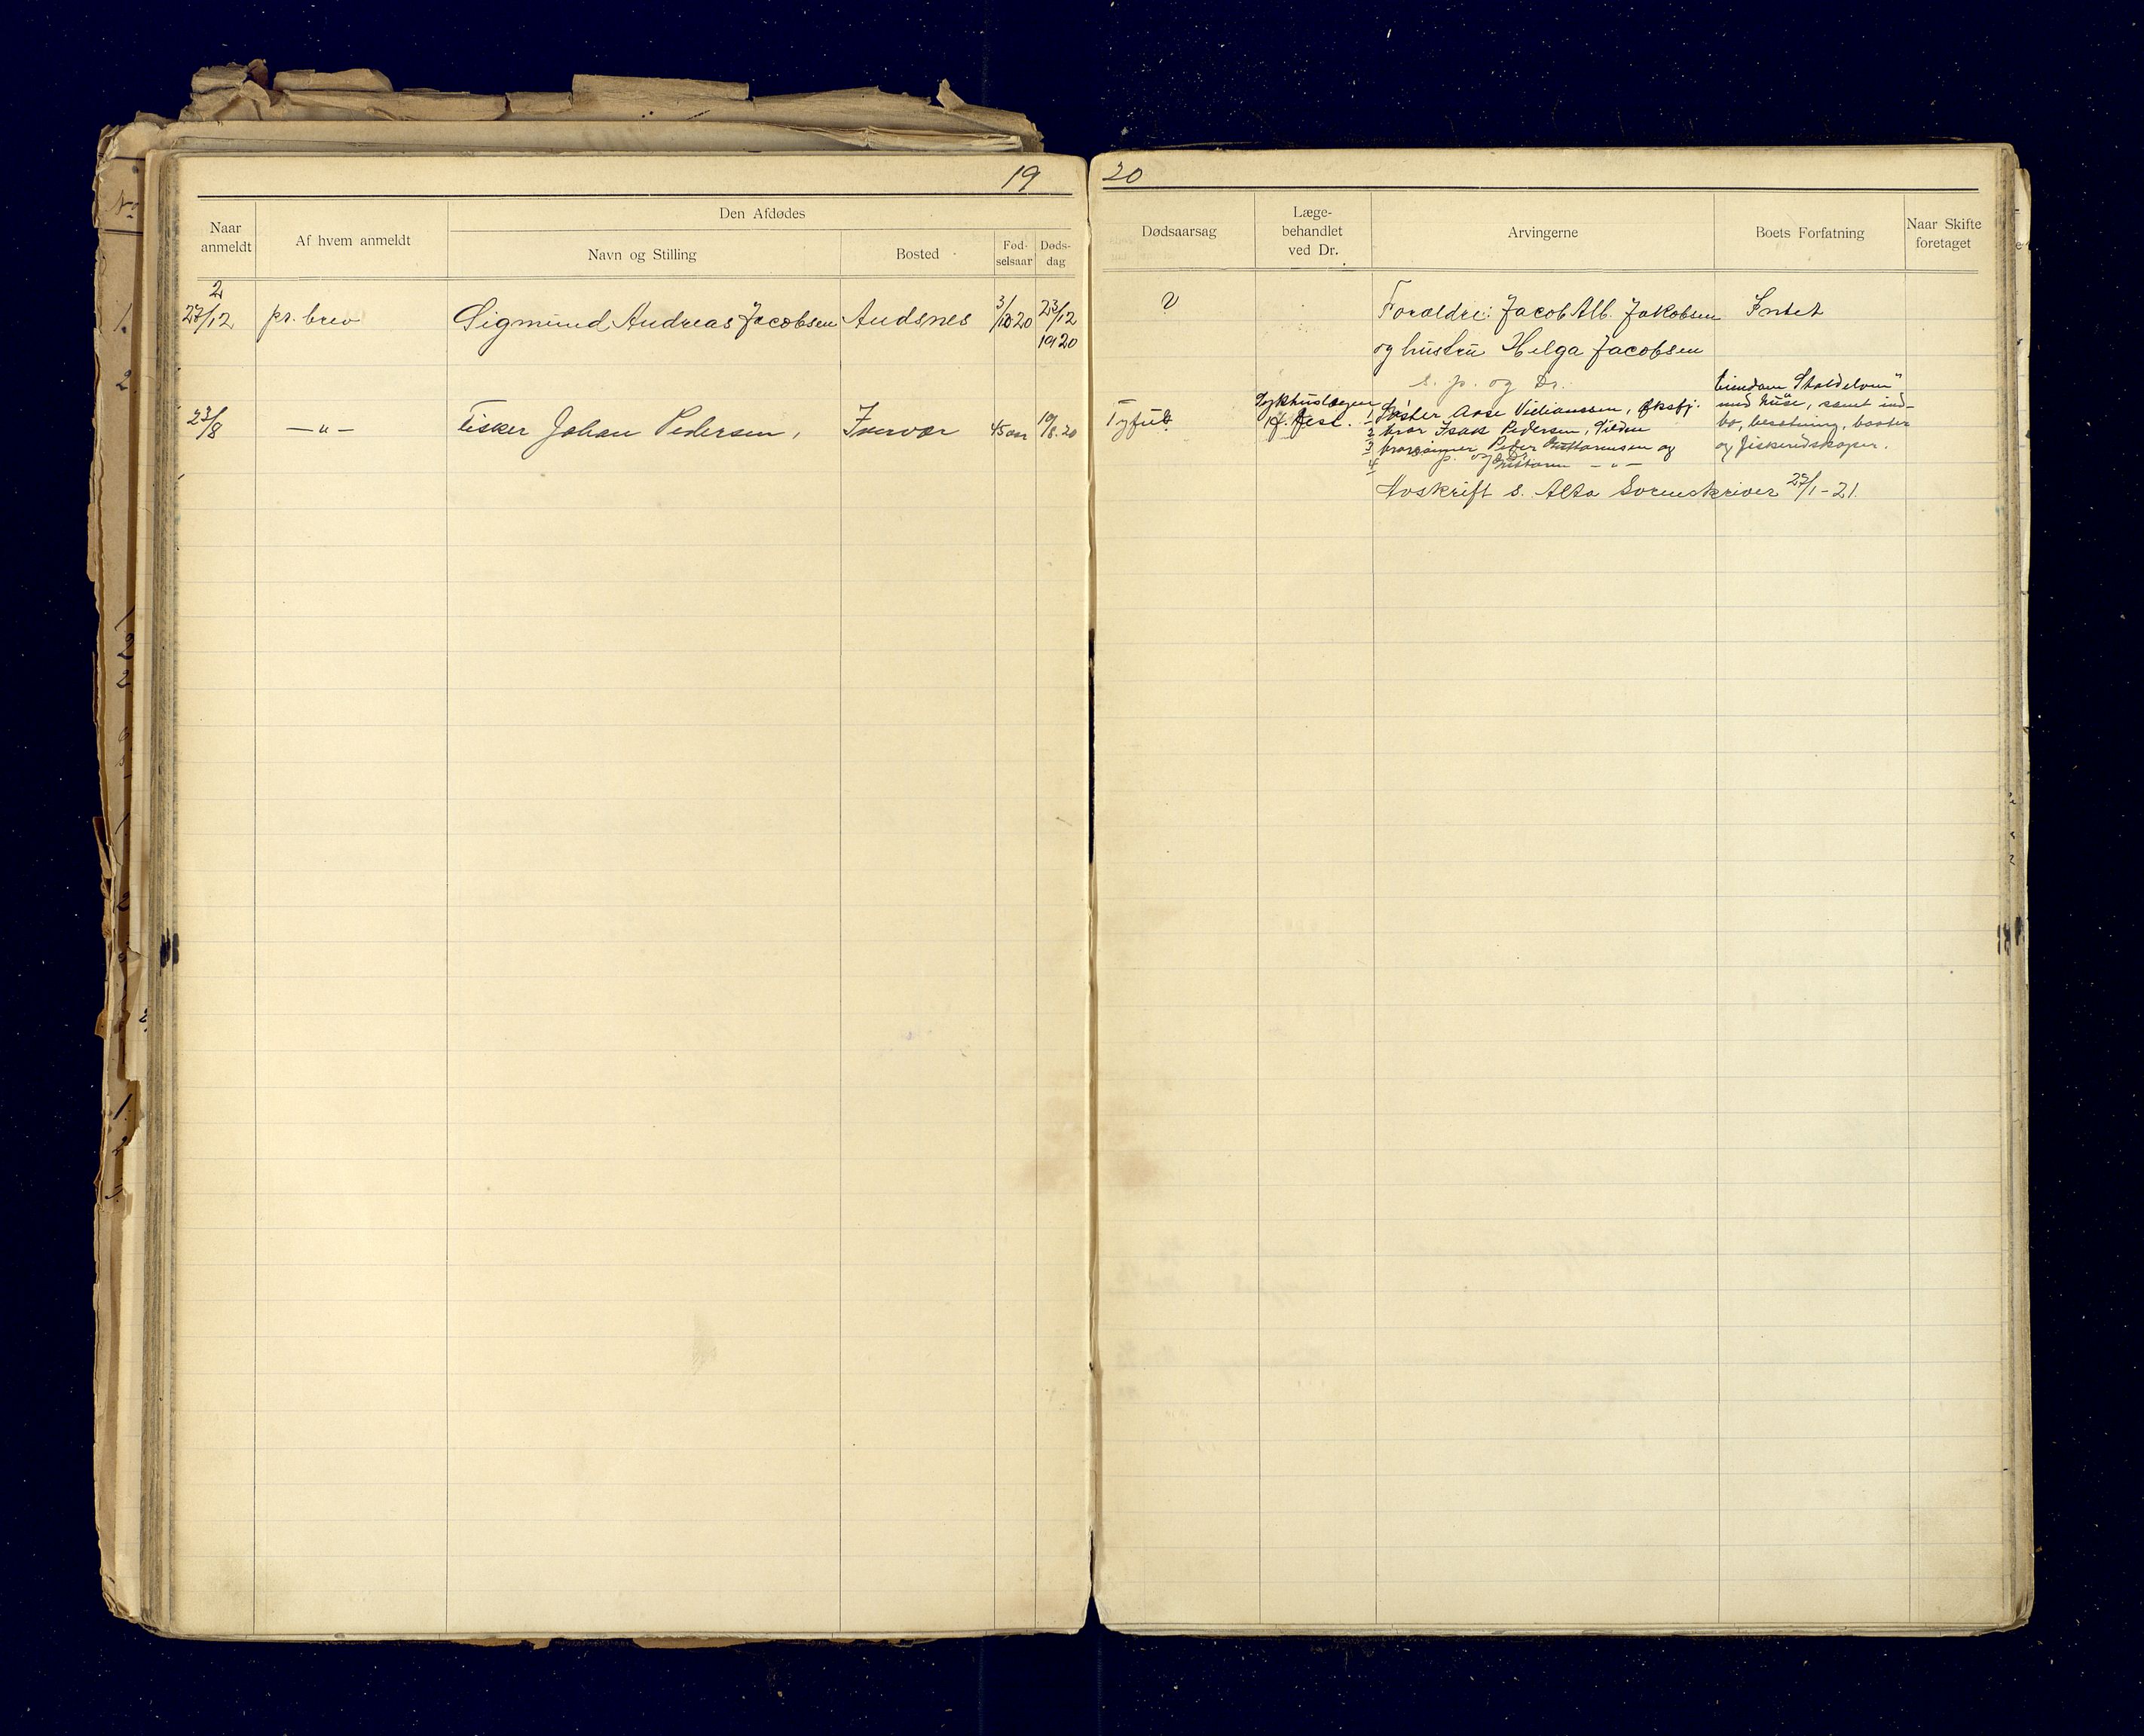 19
20
Naar anmeldt
Af hvem anmeldt
Den Afdødes
Navn og Stilling
Bosted
Fød-selsaar
Døds-dag
Dødsaarsag
Læge-behandlet ved Dr.
Arvingerne
Boets Forfatning
Naar Skifte foretaget
2
27/12 pr. brev Sigmund Andreas Jacobsen Audsnes 3/10 20 23/12 1920
? Forældre: Jacob Alb. Jakobsen Intet
og hustru Helga Jacobsen
s. p. og Dr.
23/8 —"— Fisker Johan Pedersen, 45 aar 19/8.20
Tyfus
Sykehuslægen
1 Søster Aase
2 bror Isak Pedersen,
3 Peter og
4 —"—
Eiendom
med huse, samt ind-
bo, besetning, baater
og fiskeredskaper.
Avskrift s. Alta Sorenskriver 27/1-21.